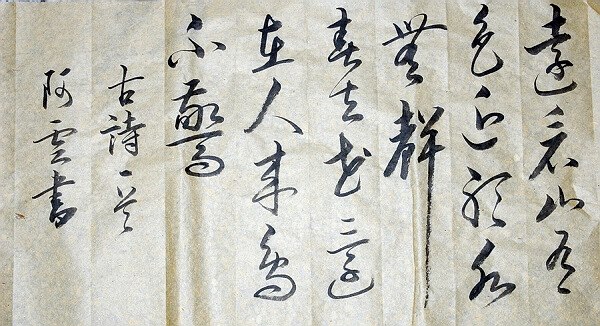 遠看山有
色近聽水
無聲
春去花還
在人來鳥
不驚
古詩一首
阿雲書